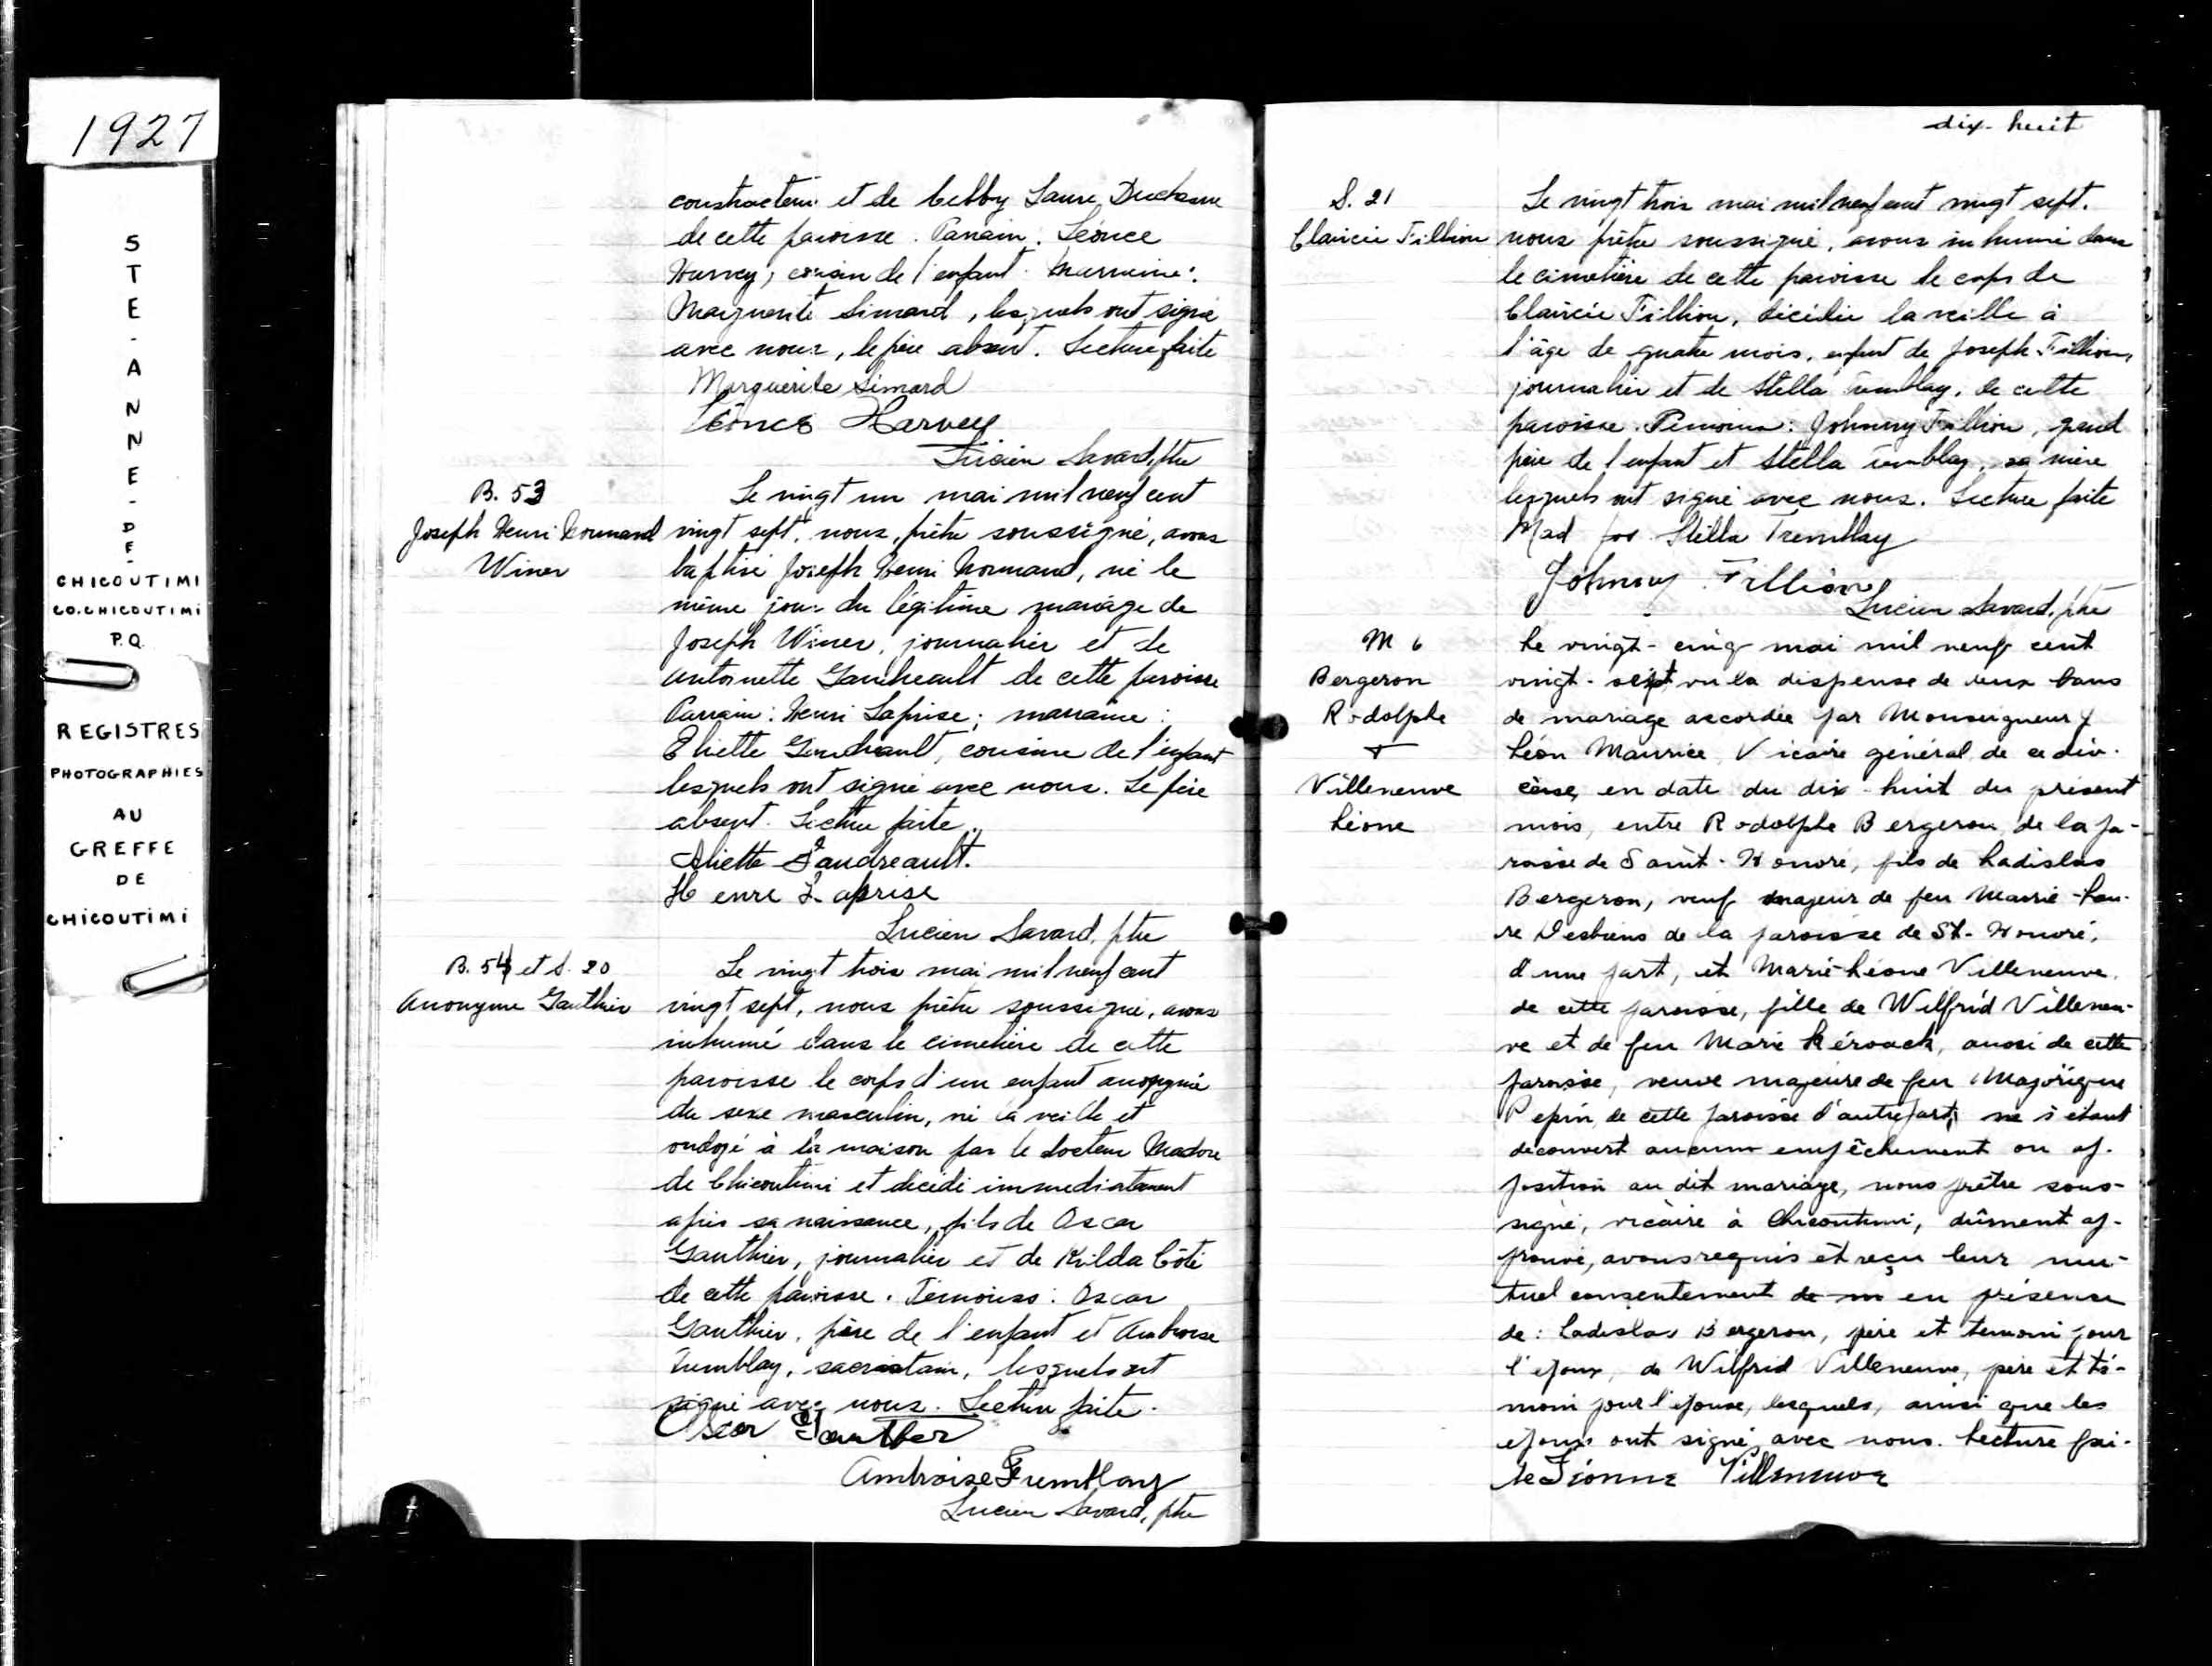 1927
STE-ANNE-DE-
CHICOUTIMI
CO. CHICOUTIMI
P.Q.
REGISTRES
PHOTOGRAPHIES
AU
GREFFE
DE
CHICOUTIMI
constructeur et de Cebby Laure Duchesne
de cette paroisse. Parrain: Léonce
Harvey, cousin de l'enfant. Marraine:
Marguerite Simard, lesquels ont signé
avec nous, le père absent. Lecture faite
Marguerite Simard
Léonce Harvey
Lucien Savard, ptre
B. 53
Joseph Henri Normand
Winer
Le vingt un mai mil neuf cent
vingt sept, nous, prêtre soussigné, avons
baptisé Joseph Henri Normand, né le
même jour du légitime mariage de
Joseph Winer, journalier et de
Antoinette Gaudreault de cette paroisse
Parrain: Henri Laprise; marraine:
Eliette Gaudreault, cousine de l'enfant
lesquels ont signé avec nous. Le père
absent. Lecture faite.
Aliette Gaudreault.
Henre Laprise
Lucien Savard, ptre
B. 54 et S. 20
Anonyme Gauthier
Le vingt trois mai mil neuf cent
vingt sept, nous prêtre soussigné, avons
inhumé dans le cimetière de cette
paroisse le corps d'un enfant anonyme
du sexe masculin, né la veille et
ondoyé à la maison par le docteur Madore
de Chicoutimi et décédé immédiatement
après sa naissance, fils de Oscar
Gauthier, journalier et de Kilda Côté
de cette paroisse. Témoins: Oscar
Gauthier, père de l'enfant et Ambroise
Tremblay, sacristain, lesquels ont
signé avec nous. Lecture faite.
Oscar Gauthier
Ambroise Tremblay
Lucien Savard, ptre
dix-huit
S. 21
Claircie Fillion
Le vingt trois mai mil neuf cent vingt sept.
nous prêtre soussigné, avons inhumé dans
le cimetière de cette paroisse le corps de
Claircie Fillion, décédée la veille à
l'âge de quatre mois, enfant de Joseph Fillion,
journalier et de Stella Tremblay, de cette
paroisse. Témoins: Johnny Fillion, grand
père de l'enfant et Stella Tremblay, sa mère
lesquels ont signé avec nous. Lecture faite
Mad Jos Stella Tremblay
Johnny Fillion
Lucien Savard, ptre
M 6
Bergeron
Rodolphe
+
Villeneuve
Léone
Le vingt-cinq mai mil neuf cent
vingt-sept vu la dispense de deux bans
de mariage accordée par Monseigneur J
Léon Maurice Vicaire général de ce dio-
cèse, en date du dix-huit du présent
mois, entre Rodolphe Bergeron, de la pa-
roisse de Saint-Honoré, fils de Ladislas
Bergeron, veuf majeur de feu Marie-Lau-
re Desbiens de la paroisse de St-Honoré,
d'une part, et Marie-Léone Villeneuve
de cette paroisse, fille de Wilfrid Villeneu-
ve et de feu Marie Kérouack, aussi de cette
paroisse, veuve majeure de feu Majorique
Pepin de cette paroisse d'autre part, ne s'étant
découvert aucun empêchement ou op-
position au dit mariage, nous prêtre sous-
signé, vicaire à Chicoutimi, dûment ap-
prouvé, avons requis et reçu leur mu-
tuel consentement de m en présence
de: Ladislas Bergeron, père et témoin pour
l'époux, de Wilfrid Villeneuve, père et té-
moin pour l'épouse, lesquels, ainsi que les
époux ont signé avec nous. Lecture fai-
te Léonne Villeneuve